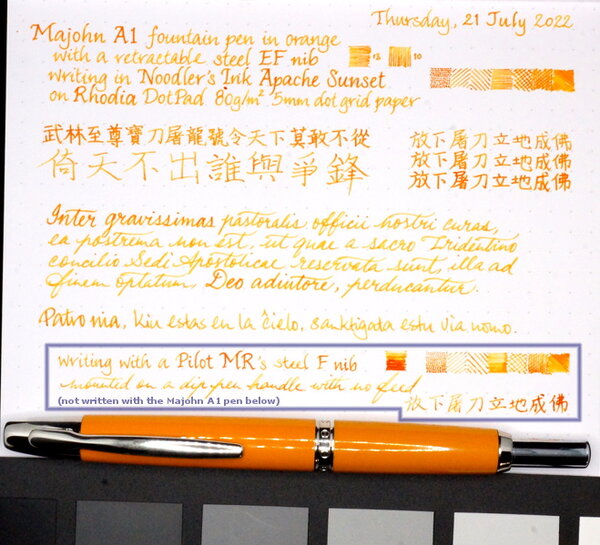 Thursday, 21 July 2022
Majohn A1 fountain pen in orange
with a retractable steel EF nib
×3 10
writing in Noodler's Ink Apache Sunset
on Rhodia DotPad 80g/m² 5mm dot grid paper
武林至尊寶刀屠龍號令天下莫敢不從
倚天不出誰與爭鋒
放下屠刀立地成佛
放下屠刀立地成佛
放下屠刀立地成佛
Inter gravissimas pastoralis officii nostri curas,
ea postrema non est, ut quae a sacro Tridentino
concilio Sedi Apostolicae reservata sunt, illa ad
finem optatum, Deo adiutore, perducantur.
Patro nia, kiu estas en la ĉielo, sanktigata estu via nomo.
writing with a Pilot MR's steel F nib
mounted on a dip pen handle with no feed
(not written with the Majohn A1 pen below)
放下屠刀立地成佛